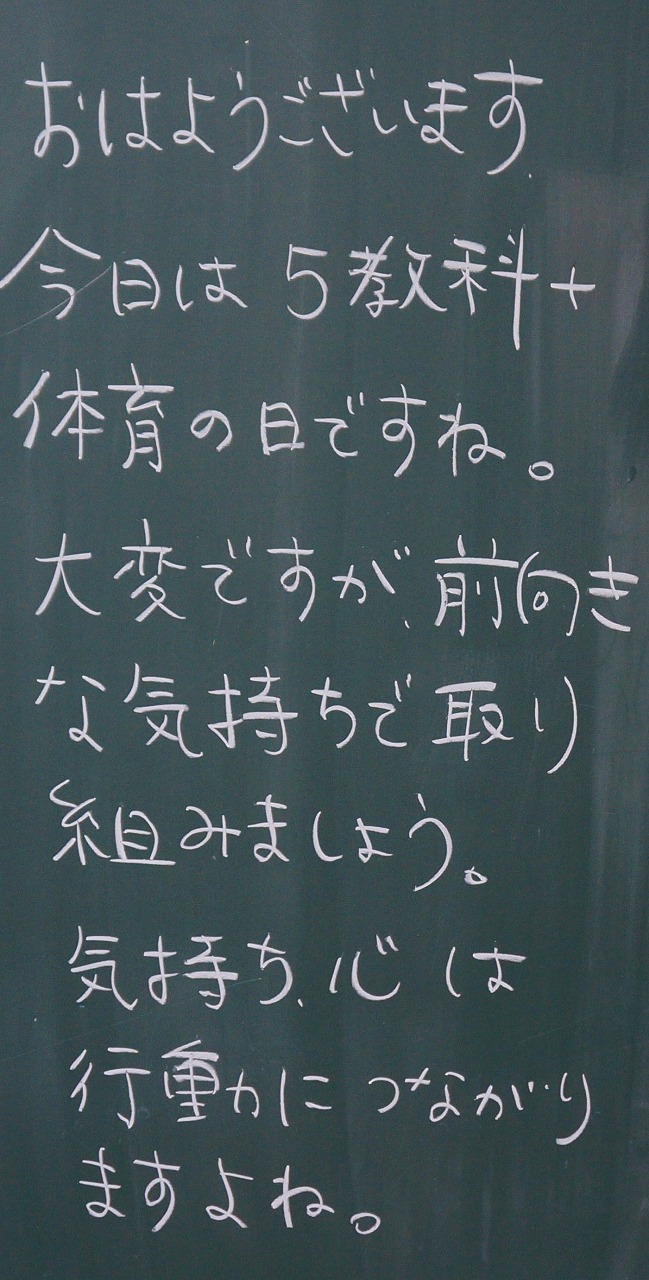 おはようございます.
今日は5教科+
体育の日ですね。
大変ですが、前向き
な気持ちで取り
組みましょう。
気持ち、心は
行動につながり
ますよね。